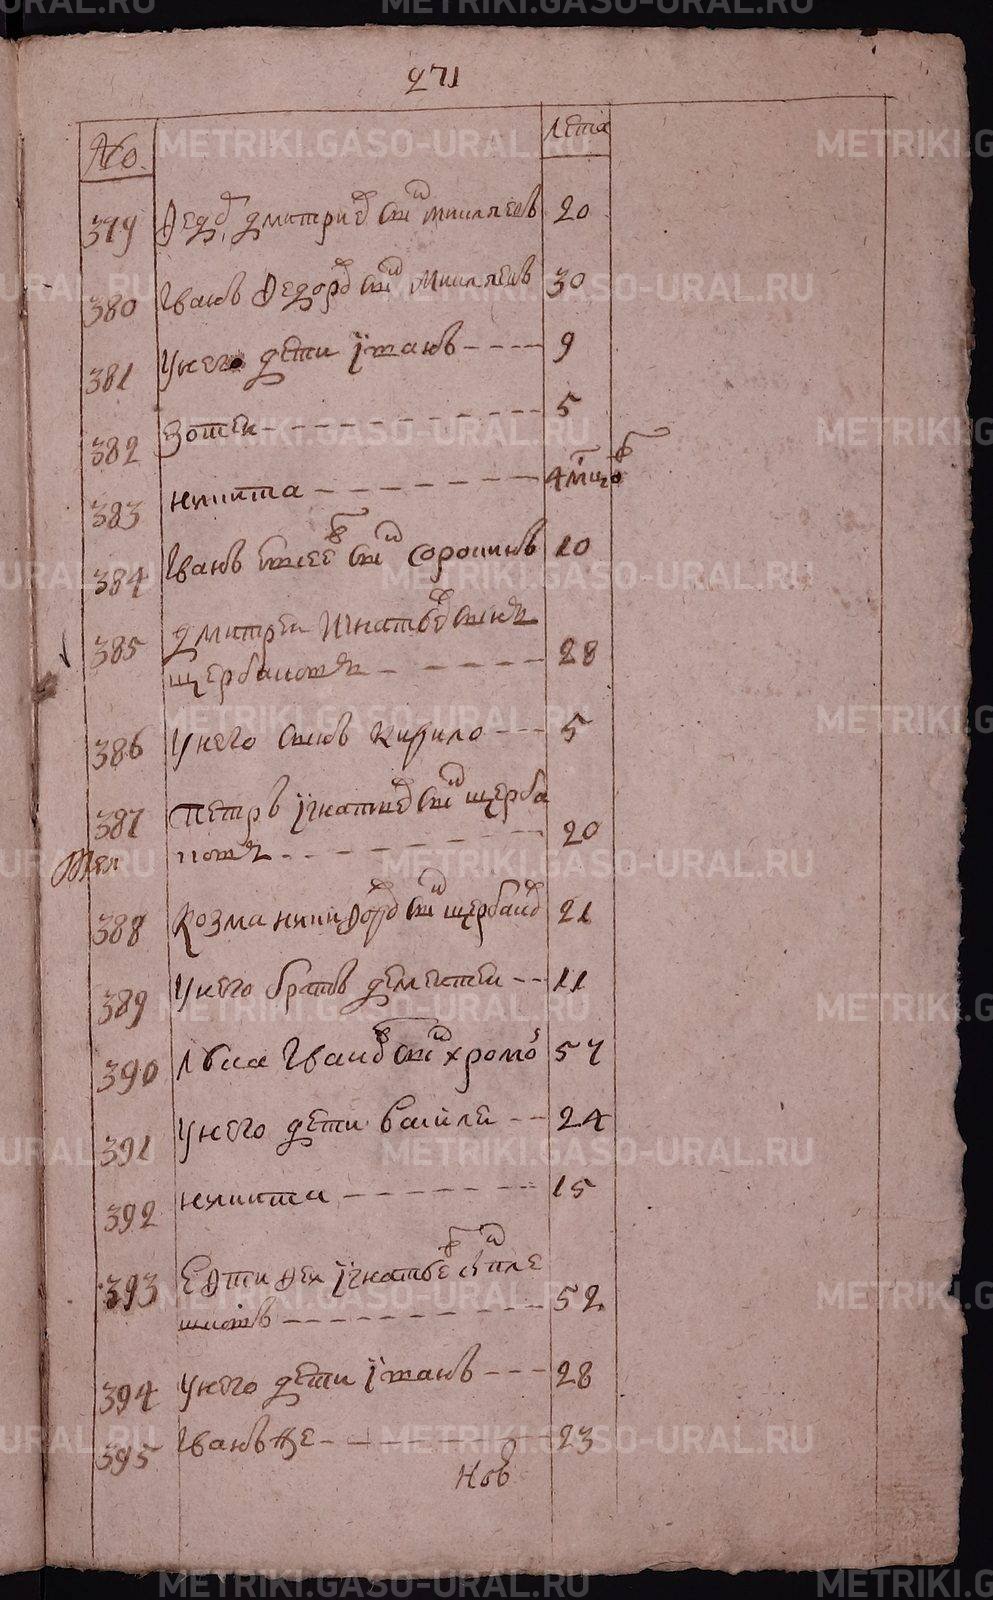 271
№ Лета
379 Федор Дмитриев сын Миляев 20
380 Иванъ Федоров сын Миляевъ 30
381 у него дети Иванъ 9
382 Зотеи 5
383 Никита 4 мцов
384 Иванъ сын Сорокинъ 10
385 Дмитреи Игнатьев сынъ
Щербаковъ 28
386 у него сынъ Кирило 5
387 Петръ Игнатиев сын Щерба
ковъ 20
388 Козма Никифоров сын Щербаков 21
389 у него братъ Дементеи 11
390 Лука Иванов сын Хромо 57
391 у него дети Василеи 24
392 Никита 15
393 Ефтифеи Игнатьев сын Пле
шковъ 52
394 у него дети Иванъ 28
395 Иванъ же 23
METRIKI.GASO-URAL.RU